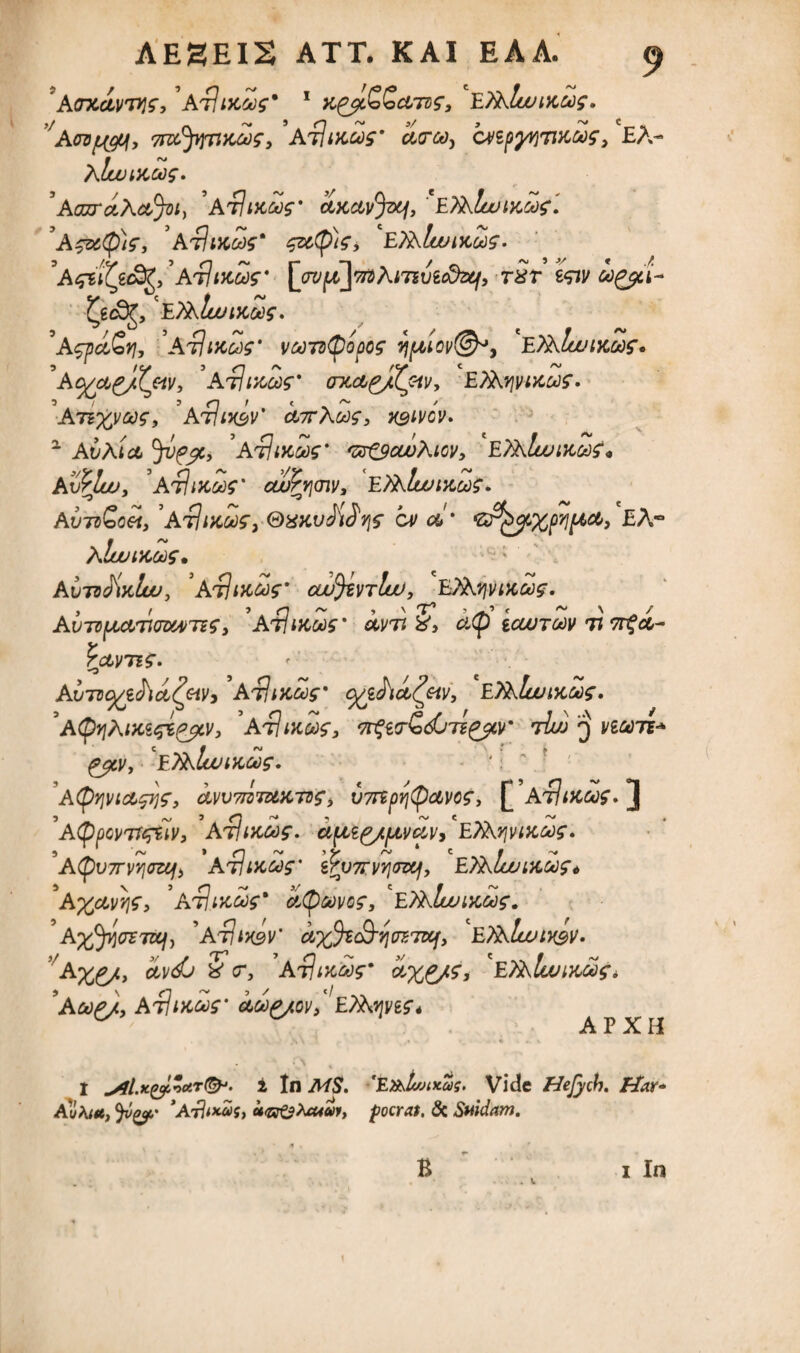 ΛΕΞΕΙΣ ΑΤΤ. ΚΑΙ ΕΛΛ. 9
Ἀσκάντης, Ἀττικῶς· ¹ κράββατος, Ἑλληνικῶς.
Ἄσομαι, παθητικῶς, Ἀττικῶς· ἄσω, ἐνεργητικῶς, Ἑλ-
ληνικῶς.
Ἀσπάλαθοι, Ἀττικῶς· ἄκανθαι, Ἑλληνικῶς.
Ἀσταφὶς, Ἀττικῶς· σταφὶς, Ἑλληνικῶς.
Ἀστεΐζεσθαι, Ἀττικῶς· [συμ]πολιτεύεσθαι, τοῦτ' ἔστιν ὡραΐ-
ζεσθαι, Ἑλληνικῶς.
Ἀστράβη, Ἀττικῶς· νωτοφόρος ἡμίονος, Ἑλληνικῶς.
Ἀσχαρίζειν, Ἀττικῶς· σκαρίζειν, Ἑλληνικῶς.
Ἀτεχνῶς, Ἀττικόν· ἁπλῶς, κοινόν.
² Αὐλία θύρα, Ἀττικῶς· προαύλιον, Ἑλληνικῶς.
Αὔξην, Ἀττικῶς· αὔξησιν, Ἑλληνικῶς.
Αὐτοβοεὶ, Ἀττικῶς, Θουκυδίδης ἐν α΄· παραχρῆμα, Ἑλ-
ληνικῶς.
Αὐτοδίκην, Ἀττικῶς· αὐθέντην, Ἑλληνικῶς.
Αὐτοματίσαντες, Ἀττικῶς· ἀντὶ τοῦ, ἀφ' ἑαυτῶν τι πρά-
ξαντες.
Αὐτοσχεδιάζειν, Ἀττικῶς· σχεδιάζειν, Ἑλληνικῶς.
Ἀφηλικεστέραν, Ἀττικῶς, πρεσβυτέραν· τὴν δὲ νεωτέ-
ραν, Ἑλληνικῶς.
Ἀφηνιαστὴς, ἀνυπότακτος, ὑπερήφανος, [Ἀττικῶς.]
Ἀφροντιστεῖν, Ἀττικῶς. ἀμεριμνᾶν, Ἑλληνικῶς.
Ἀφυπνῆσαι, Ἀττικῶς· ἐξυπνῆσαι, Ἑλληνικῶς.
Ἀχανὴς, Ἀττικῶς· ἄφωνος, Ἑλληνικῶς.
Ἀχθήσεται, Ἀττικόν· ἀχθεσθήσεται, Ἑλληνικόν.
Ἄχρι, ἄνευ τοῦ σ, Ἀττικῶς· ἄχρις, Ἑλληνικῶς.
Ἀωρὶ, Ἀττικῶς· ἀώριον, Ἕλληνες.
ΑΡΧΗ
1 Al. κράβατος. 2 In MS. Ἑλληνικῶς. Vide Hesych. Har-
Αὔλια, θύρα· Ἀττικῶς, pocrat. & Suidam.
B 1 In